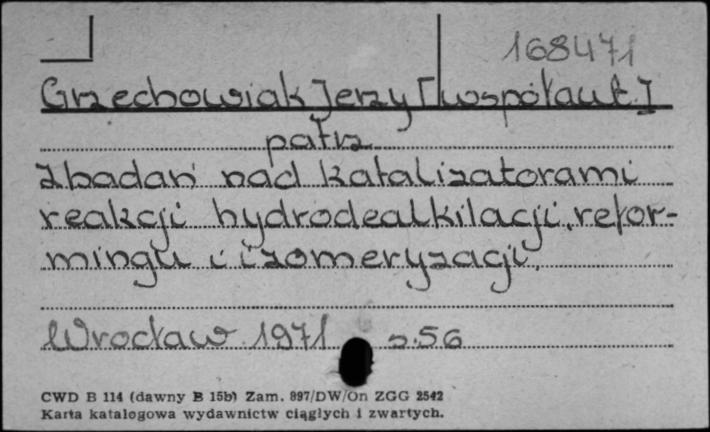 168471
Grzechowiak Jerzy [współaut.]
patrz
Z badań nad katalizatorami
reakcji hydrodealkilacji, refor-
mingu i izomeryzacji.
Wrocław 1971 s. 56
CWD B 114 (dawny B 15b) Zam. 897/DW/On ZGG 2542
Karta katalogowa wydawnictw ciągłych i zwartych.